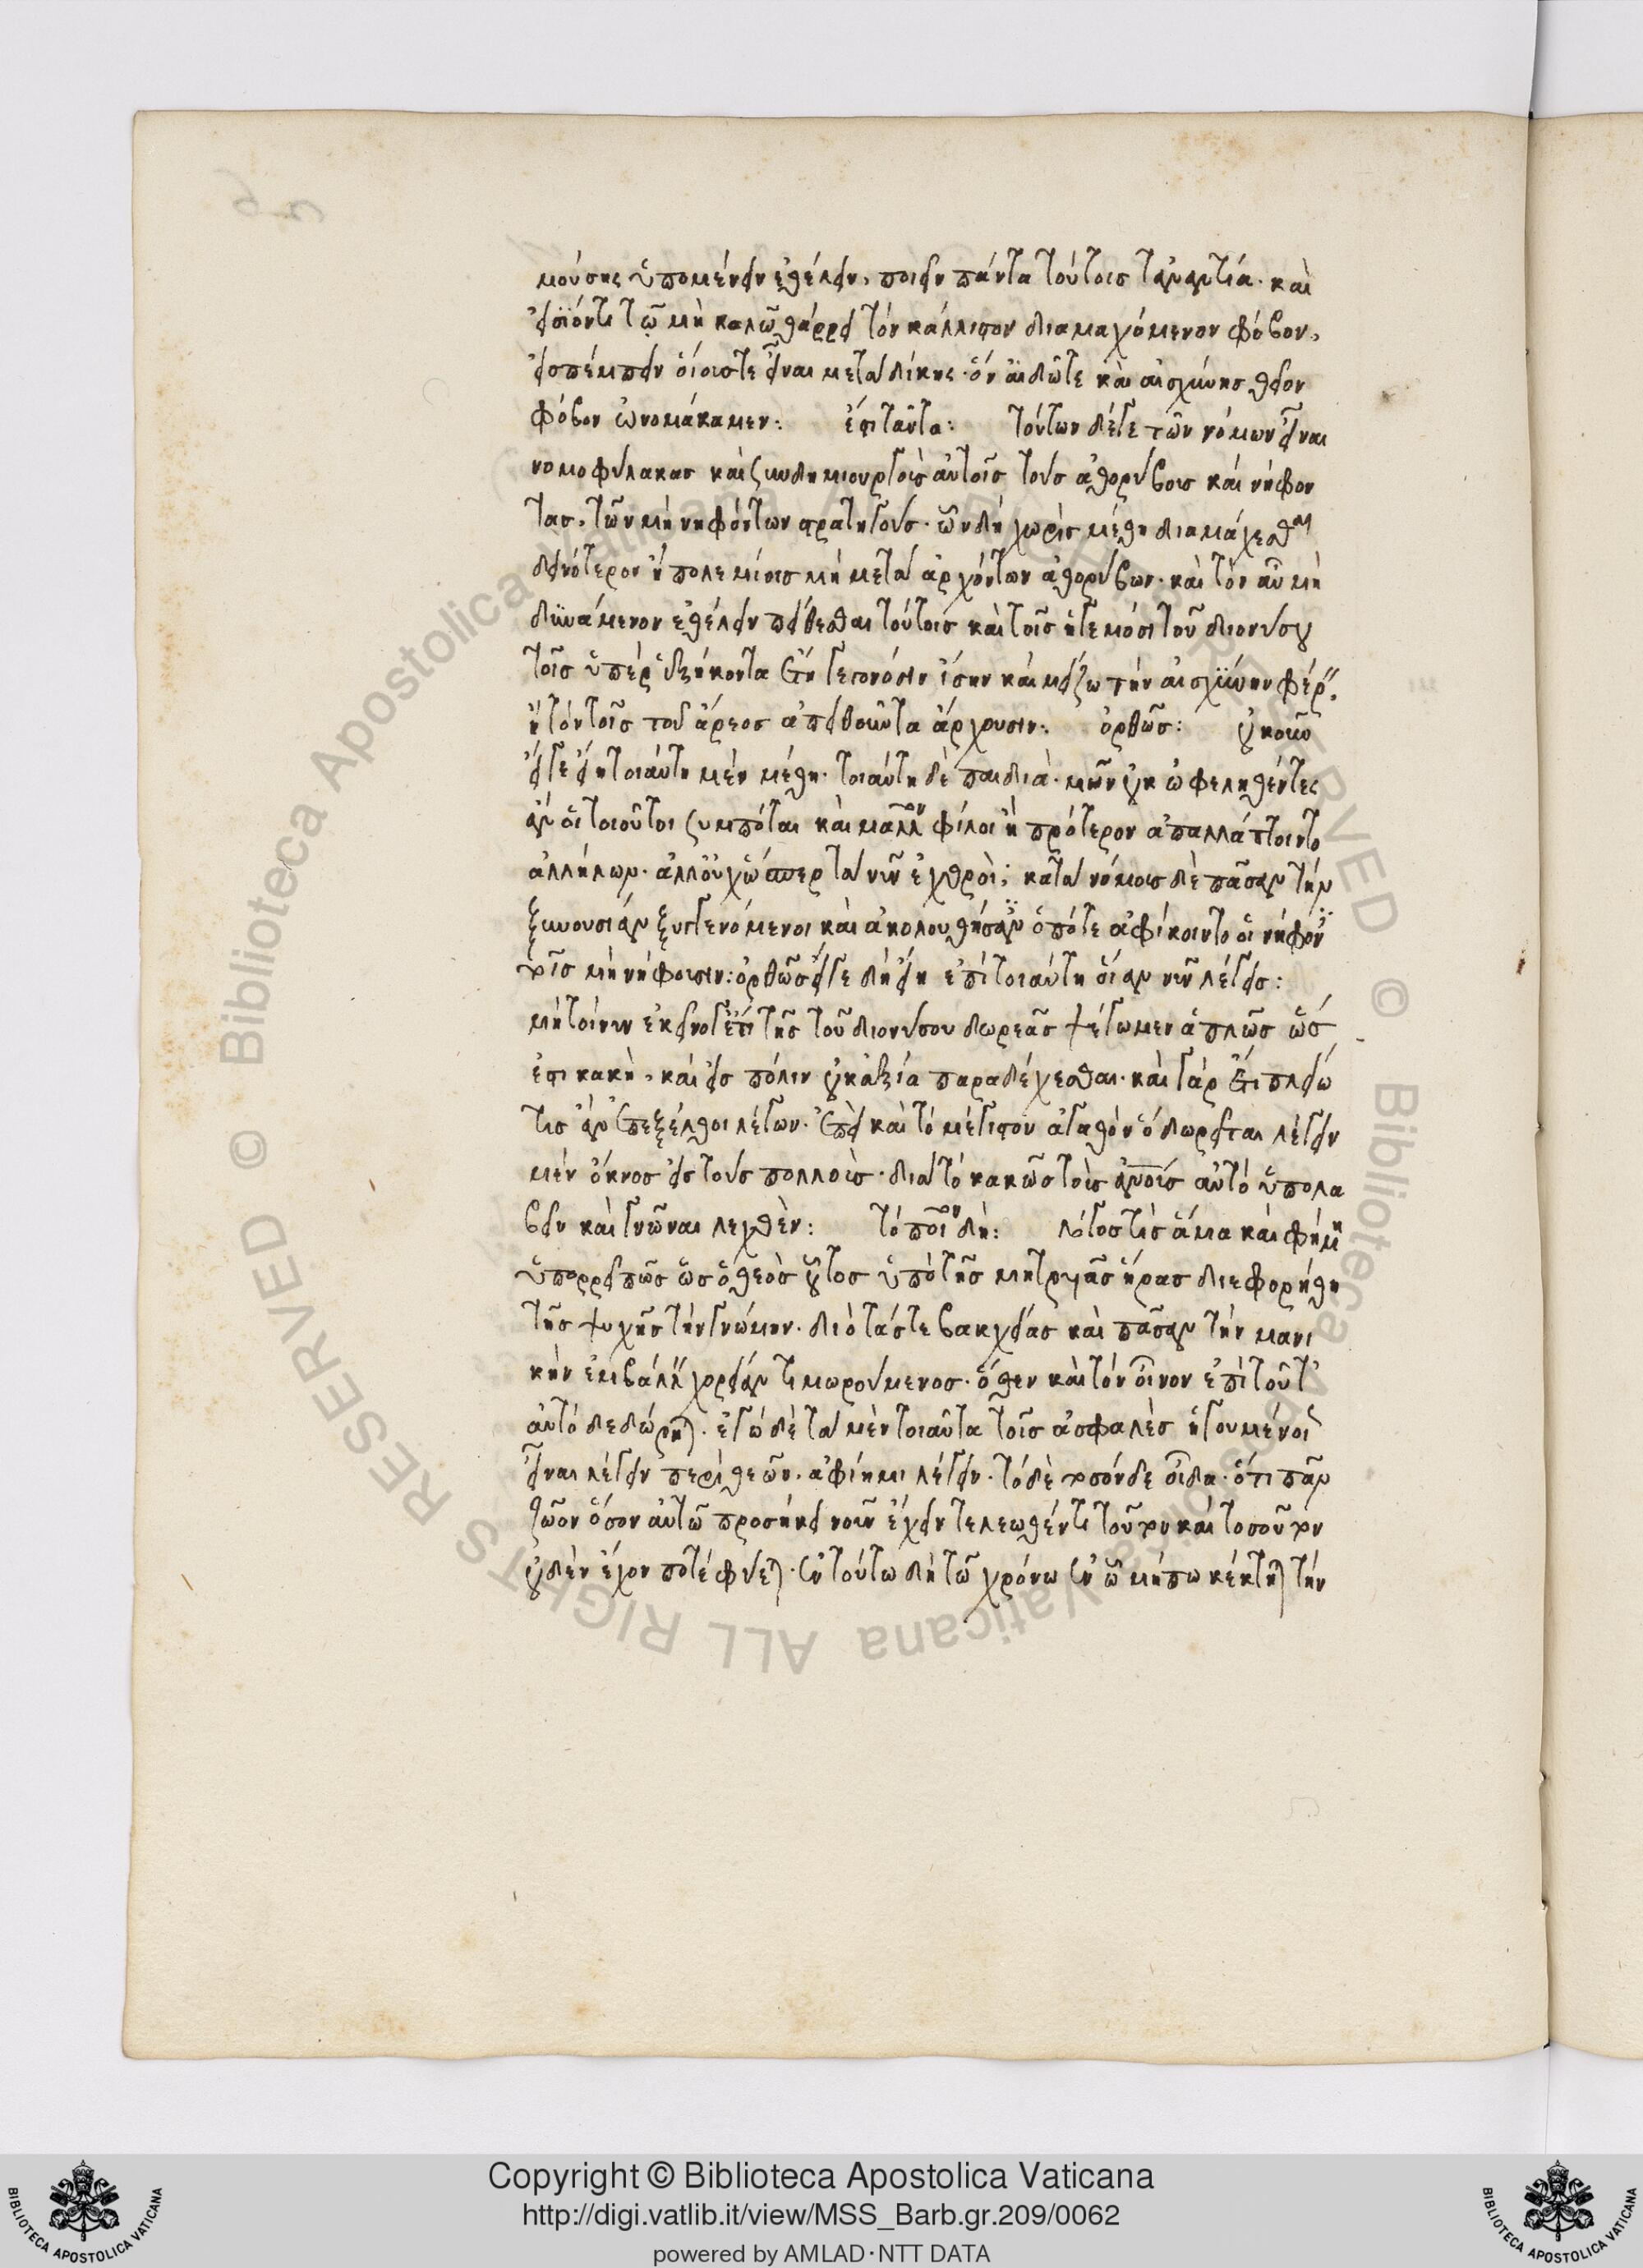 μούσης ὑπομένειν ἐθέλειν, ποιεῖν πάντα τούτοις τἀναντία· καὶ
εἰσϊόντι τῶ μὴ καλῶ θάρρει τὸν κάλλιστον διαμαχόμενον φόβον,
εἰσπέμπειν οἵουστε εἶναι μετὰ δίκης· ὃν αἰδῶτε καὶ αἰσχύνης θεῖον
φόβον ὠνομάκαμεν: ἔστι ταῦτα: τούτων δέγε τῶν νόμων εἶναι
νομοφύλακας καὶ συνδημιουργοὺς αὐτοῖς τοὺς ἀθορύβους καὶ νήφον
τας, τῶν μὴ νηφόντων στρατηγούς· ὧν δὴ χωρὶς μέθη διαμάχεσθαι
δεινότερον ἢ πολεμίοις μὴ μετὰ ἀρχόντων ἀθορύβων· καὶ τὸν αὖ μὴ
δυνάμενον ἐθέλειν πείθεσθαι τούτοις καὶ τοῖς ἡγεμόσι τοῦ διονύσου
τοῖς ὑπὲρ ἑξήκοντα ἔτη γεγονόσιν ἴσην καὶ μείζω τὴν αἰσχύνην φέρειν,
ἢ τὸν τοῖς τοῦ ἄρεος ἀπειθοῦντα ἄρχουσιν: ὀρθῶς: οὐκοῦν
εἴγε εἴη τοιαύτη μὲν μέθη· τοιαύτη δὲ παιδιὰ· μῶν οὐκ ὠφεληθέντες
ἂν οἱ τοιοῦτοι συμπόται καὶ μᾶλλον φίλοι ἢ πρότερον ἀπαλλάττοιντο
ἀλλήλων· ἀλλ' οὐχ ὥσπερ τὰ νῦν ἐχθροὶ; κατὰ νόμους δὲ πᾶσαν τὴν
ξυνουσίαν ξυγγενόμενοι καὶ ἀκολουθήσαν ὁπότε ἀφίκοιντο οἱ νήφον
τοῖς μὴ νήφουσιν: ὀρθῶς εἴγε δὴ εἴη ἐπὶ τοιαύτη οἵαν νῦν λέγεις:
μὴ τοίνυν ἐκεῖνογ' ἔτι τῆς τοῦ διονύσου δωρεᾶς ψέγωμεν ἁπλῶς ὥς
ἐστι κακὴ, καὶ εἰς πόλιν οὐκ ἀξία παραδέχεσθαι· καὶ γὰρ ἔτι πλείω
τις ἂν ἐπεξέλθοι λέγων· ἐπεὶ καὶ τὸ μέγιστον ἀγαθὸν ὃ δωρεῖται λέγειν
μὲν ὄκνος εἰς τοὺς πολλοὺς· διὰ τὸ κακῶς τοὺς ἀνους αὐτὸ ὑπολα
βεῖν καὶ γνῶναι λεχθὲν: τὸ ποῖον δὴ: λόγος τὶς ἅμα καὶ φήμη
ὑπορρεῖ πῶς ὡς ὁ θεὸς οὗτος ὑπὸ τῆς μητρυᾶς ἥρας διεφορήθη
τῆς ψυχῆς τὴν γνώμην· διὸ τάς τε βακχείας καὶ πᾶσαν τὴν μανι
κὴν ἐμβάλλει χορείαν τιμωρούμενος· ὅθεν καὶ τὸν οἶνον ἐπὶ τοῦτ'
αὐτὸ δεδώρηται· ἐγὼ δὲ τὰ μὲν τοιαῦτα τοῖς ἀσφαλὲς ἡγουμένοις
εἶναι λέγειν περὶ θεῶν, ἀφίημι λέγειν· τὸ δὲ τοσόνδε οἶδα· ὅτι πᾶν
ζῶον ὅσον αὐτῶ προσήκει νοῦν ἔχειν τελεωθέντι τοῦτον καὶ τοσοῦτον
οὐδὲν ἔχον ποτὲ φύεται· ἐν τούτω δὴ τῶ χρόνω ἐν ὧ μήπω κέκτηται τὴν
Copyright © Biblioteca Apostolica Vaticana
http://digi.vatlib.it/view/MSS_Barb.gr.209/0062
powered by AMLAD·NTT DATA